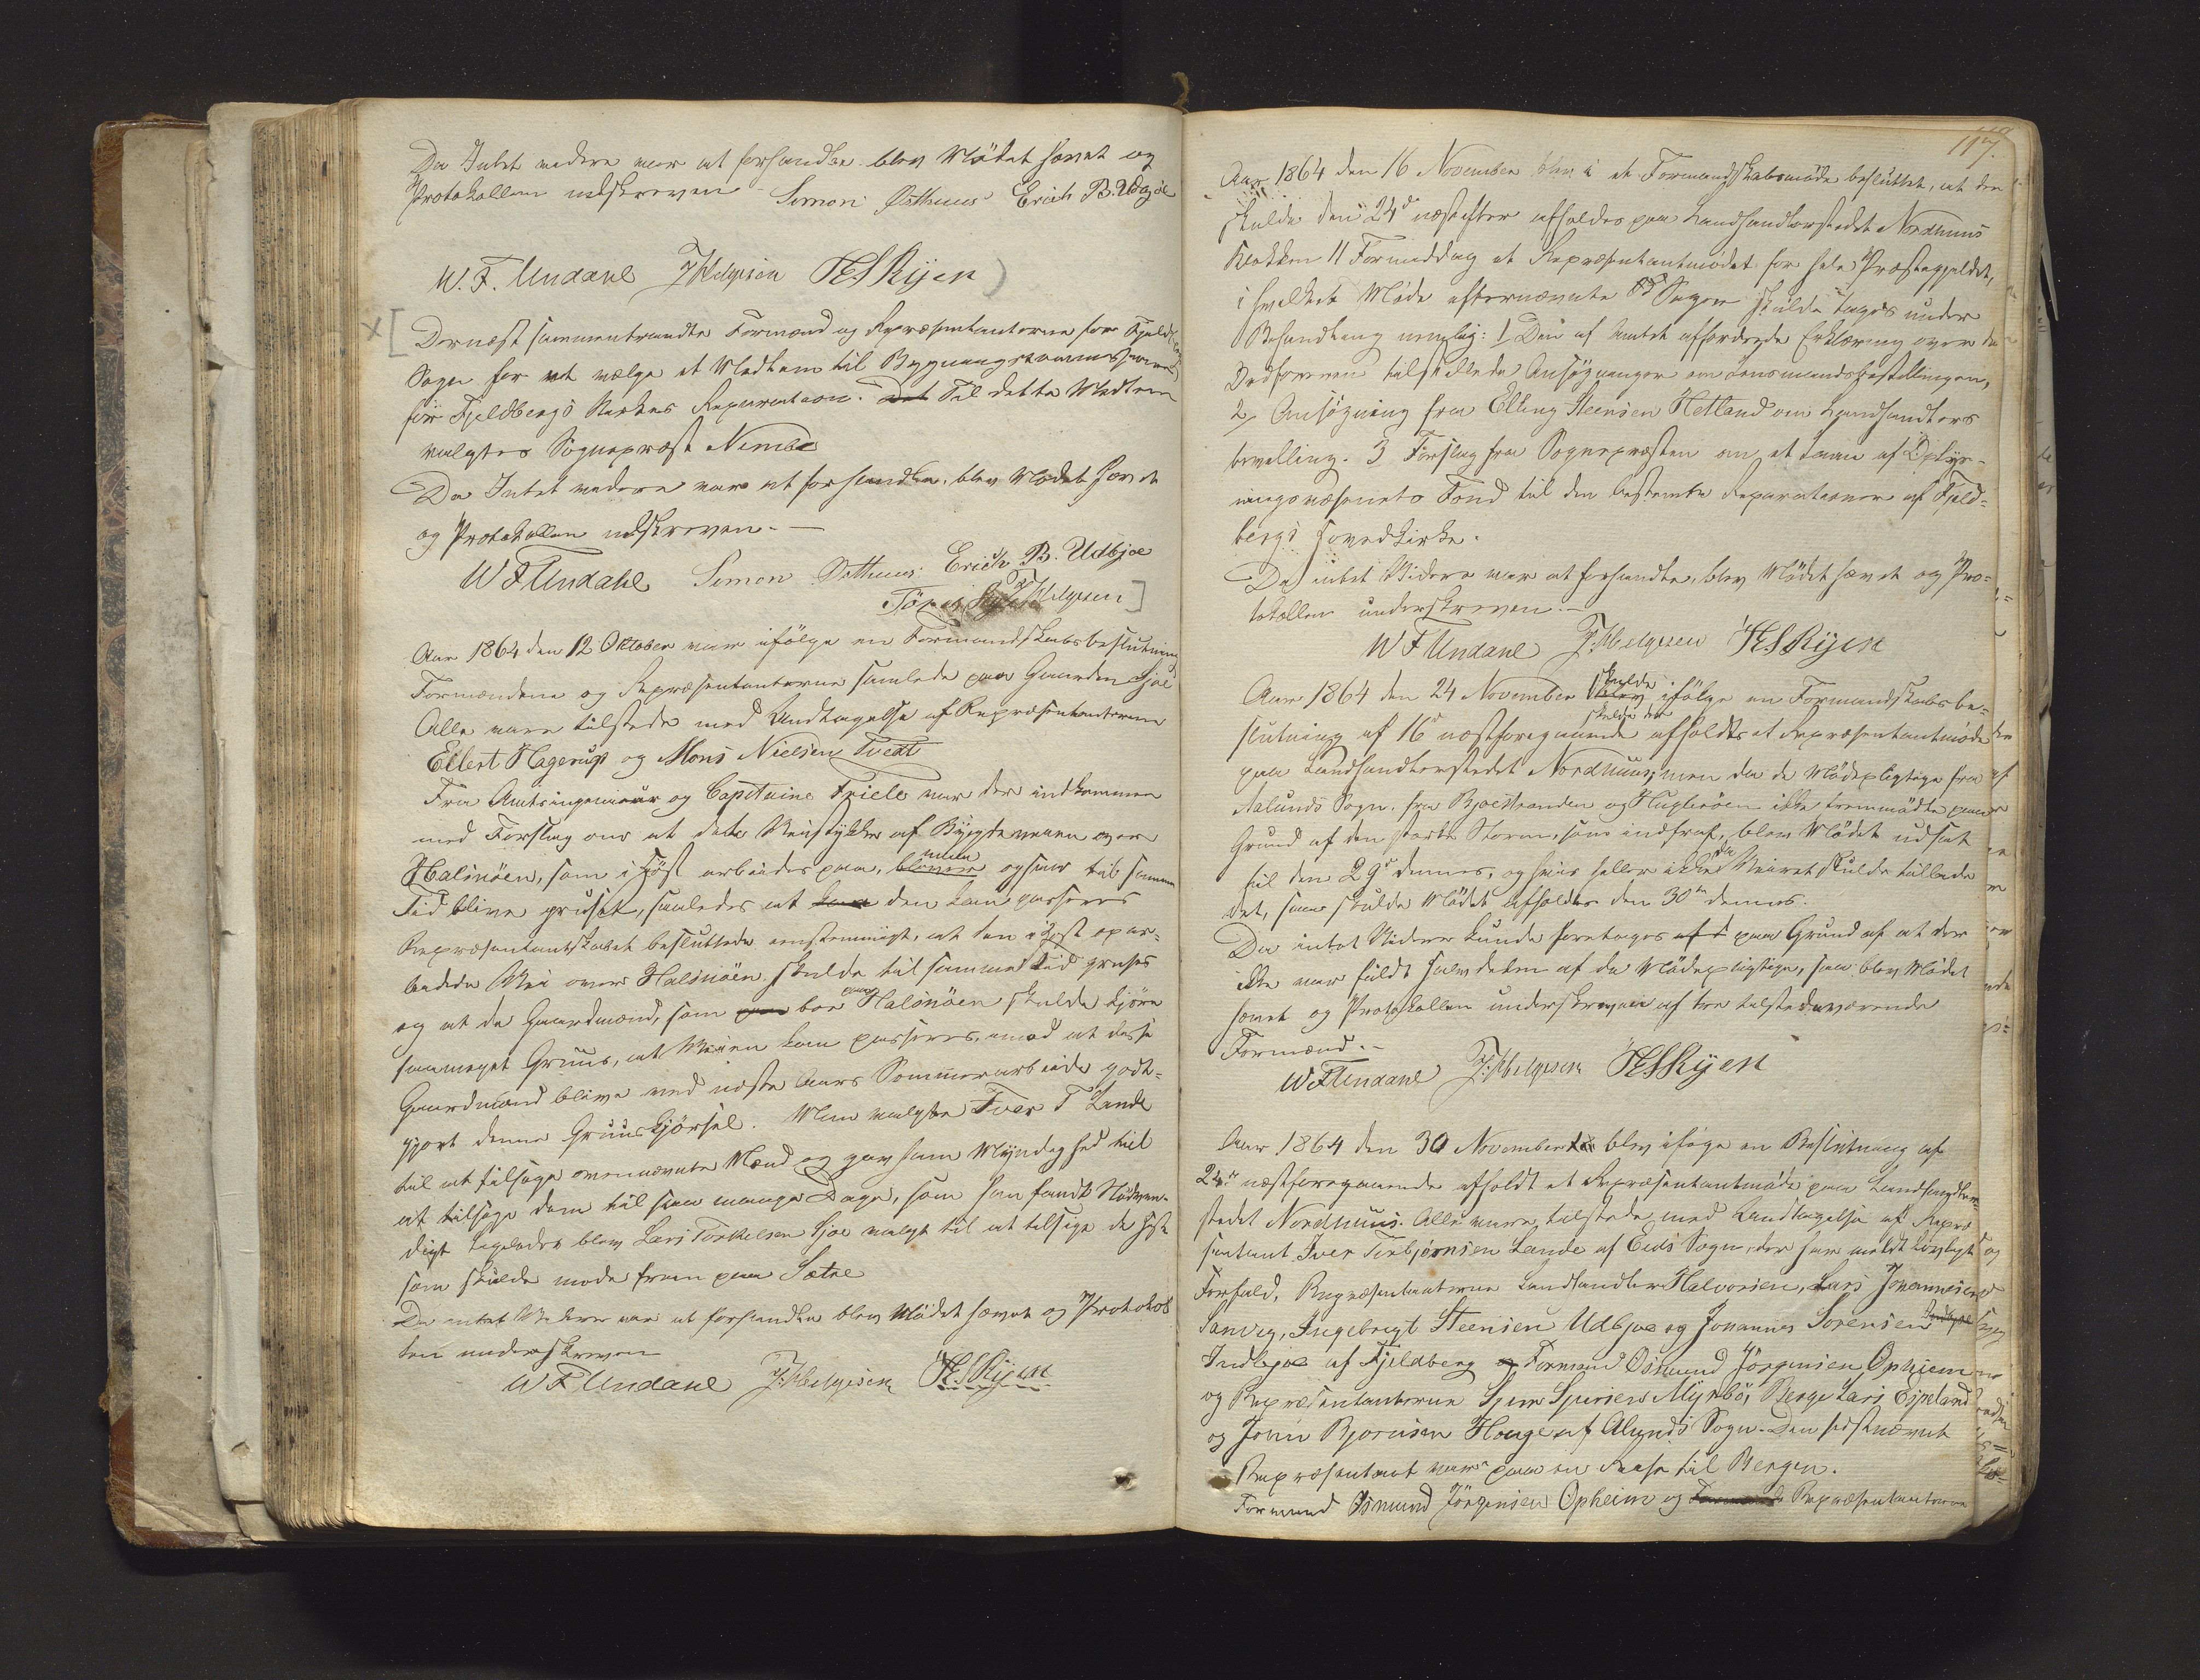 Da Intet videre var at forhandle blev Mødet hævet og
Protokollen udskreven - Simon Østhuus Erich B. Udbjoe
W. F. Undahl J Helgesen H S Ryen
Dernæst sammentraadte Formænd og Repræsentanterne for Fjeldbergs
Sogn for at vælge et Medlem til Bygningskommissionen
for Fjeldbergs Kirkes Reparation. Det Til dette Medlem
valgtes Sognepræst Nimbe
Da Intet videre var at forhandle, blev Mødet hævet
og Protokollen udskreven. -
W F Undahl Simon Østhuus Erich B. Udbjoe
J Helgesen
Aar 1864 den 12 Oktober var ifølge en Formandskabsbeslutning
Formændene og Repræsentanterne samlede paa Gaarden Sjoe
Alle vare tilstede med Undtagelse af Repræsentanterne
Eilert Hagerup og Mons Nielsen Tvedt
Fra Amtsingenieur og Capitaine Friele var der indkommen
med Forslag om at dette Veistykke af Bygdeveien over
Halsnöen, som i Höst arbeides paa, blever maa ogsaa til samme
Tid blive gruset, saaledes at kan den kan passeres
Repræsentantskabet besluttede eenstemmigt, at den i Høst opar-
beidede Vei over Halsnöen, skulde til samme Tid gruses
og at de Gaardmænd, som paa boe paa Halsnöen skulde kjöre
saameget Gruus, at Veien kan passeres, imod at disse
Gaardmænd blive ved næste Aars Sommerarbeide godt-
gjort denne Gruuskjörsel. Man valgte Iver T Lande
til at tilsige ovennævnte Mænd og gav ham Myndighed til
at tilsige dem til saa mange Dage, som han fandt Nödven-
digt ligeledes blev Lars Torkelsen Sjoe valgt til at tilsige de Heste
som skulde møde frem paa Sætre
Da intet Videre var at forhandle blev Mödet hævet og Protokol
len underskreven
W F Undahl J. Helgesen H. S Ryen
117.
Aar 1864 den 16 November blev i et Formandskabsmøde besluttet, at der
skulde den 24de næstefter afholdes paa Landhandlerstedet Nordhuus
Klokken 11 Formiddag et Repræsentantmødet for hele Præstegjeldet,
i hvilket Møde efternævnte Sager skulde tages under
Behandling nemlig: 1 Den af Amtet affordrede Erklæring over de
Dedsorenen tilstillede Ansøgninger om Lensmandsbestillingen,
2, Ansögning fra Elling Steensen Hetland om Landhandlers
bevilling. 3 Forslag fra Sognepræsten om et Laan af Oplys-
ningsvæsenets Fond til den bestemte Reparationer af Fjeld-
bergs Hovedkirke.
Da intet Videre var at forhandle, blev Mødet hævet og Pro-
tokollen underskreven. -
W F Undahl J. Helgesen H S Ryen
Aar 1864 den 24 November blev skulde ifølge en Formandskabsbe-
skulde der
slutning af 16de næstforegaaende afholdes et Repræsentantmøde
paa Landhandlerstedet Nordhuus, men da de Mødepligtige fra
Aalunds Sogn, fra Bjoestranden og Huglesöen ikke fremmödte paa
Grund af den stærke Storm, som indtraf, blev Mødet udsat
til den 29de dennes, og hvis heller ikke da Veiret skulde tillade
det, saa skulde Mødet afholdes den 30te dennes.
Da intet Videre kunde foretages af i paa Grund af at der
ikke var fuldt halvdelen af de Mødepligtige, saa blev Mødet
hævet og Protokollen underskreven af tre tilstedeværende
Formænd. -
W F Undahl J. Helgesen H S Ryen
Aar 1864 den 30 November blev ifølge en Beslutning af
24de næstforegaaende afholdt et Repræsentantmøde paa Landhandler-
stedet Nordhuus. Alle vare tilstede med Undtagelse af Repræ
sentant Iver Torbjørnsen Lande af Eids Sogn, der har meldt lovligt
Forfald, Repræsentanterne Landhandler Halvorsen, Lars Johannesen
Sanvig, Ingebrigt Steensen Udbjoe og Johannes Sørensen
Indbjoe af Fjeldberg og Formand Osmund Jörgensen Opheim
og Repræsentanterne Sjur Sjursen Myrbö, Berge Lars Espeland
og John Bjørnsen Houge af Alunds Sogn. Den sistnævnt
Repræsentant var paa en Reise til Bergen.
Formand Osmund Jörgensen Opheim og Repræsentanterne